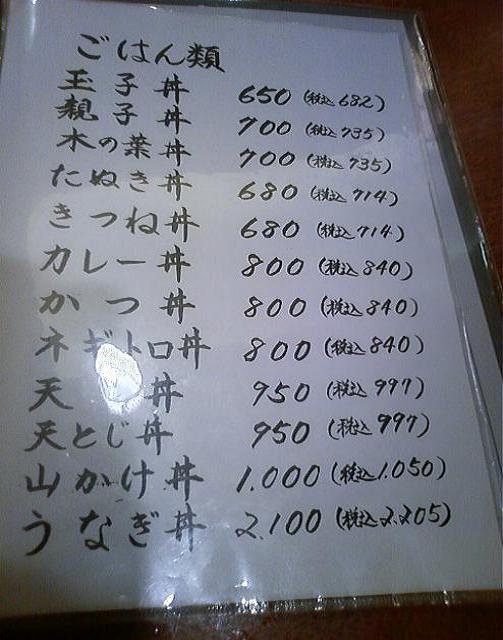 ごはん類
玉子丼 650 (税込682)
親子丼 700 (税込735)
木の葉丼 700 (税込735)
たぬき丼 680 (税込714)
きつね丼 680 (税込714)
カレー丼 800 (税込840)
かつ丼 800 (税込840)
ネギトロ丼 800 (税込840)
天丼 950 (税込997)
天とじ丼 950 (税込997)
山かけ丼 1.000 (税込1.050)
うなぎ丼 2.100 (税込2.205)